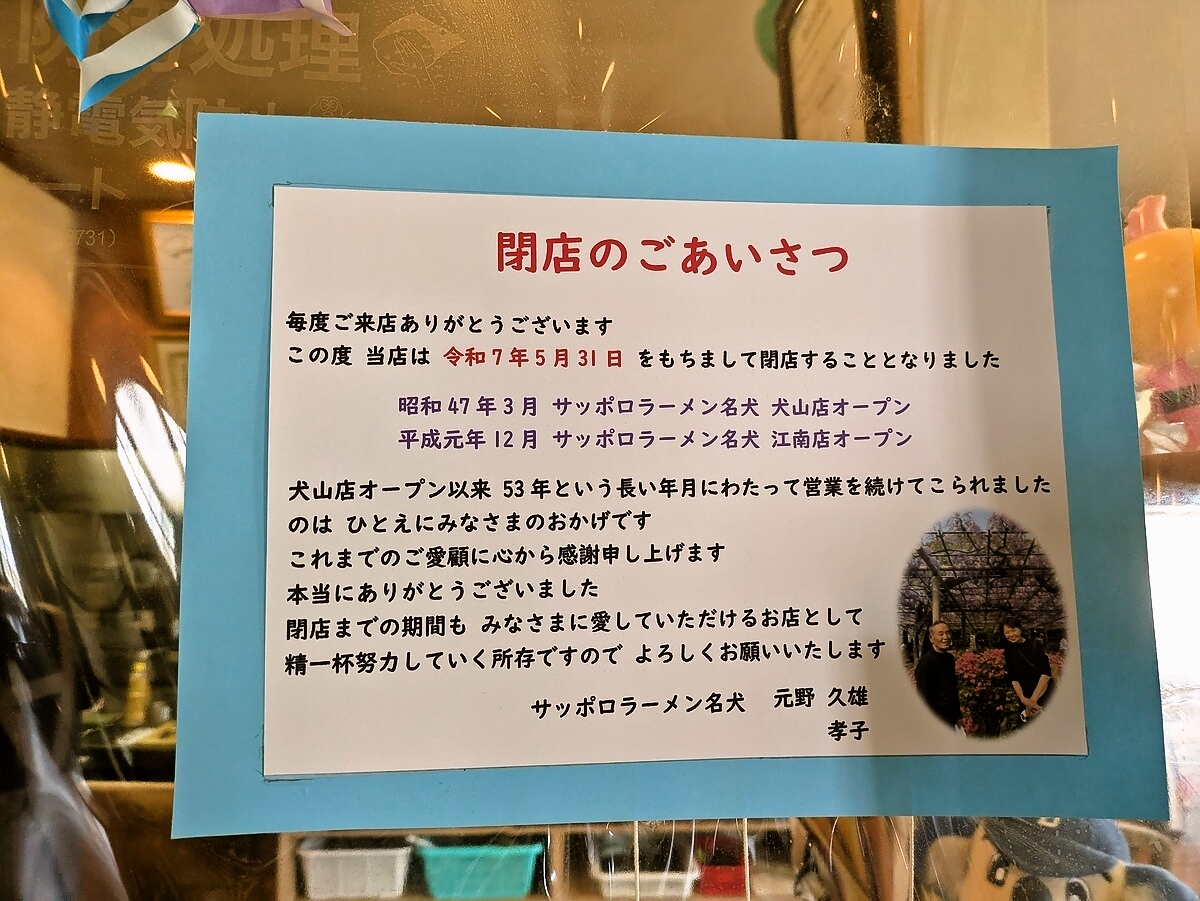 処理
静電気防止
ート
731)
閉店のごあいさつ
毎度ご来店ありがとうございます
この度 当店は 令和7年5月31日 をもちまして閉店することとなりました
昭和47年3月 サッポロラーメン名犬 犬山店オープン
平成元年12月 サッポロラーメン名犬 江南店オープン
犬山店オープン以来 53年という長い年月にわたって営業を続けてこられました
のは ひとえにみなさまのおかげです
これまでのご愛顧に心から感謝申し上げます
本当にありがとうございました
閉店までの期間も みなさまに愛していただけるお店として
精一杯努力していく所存ですので よろしくお願いいたします
サッポロラーメン名犬 元野 久雄
孝子